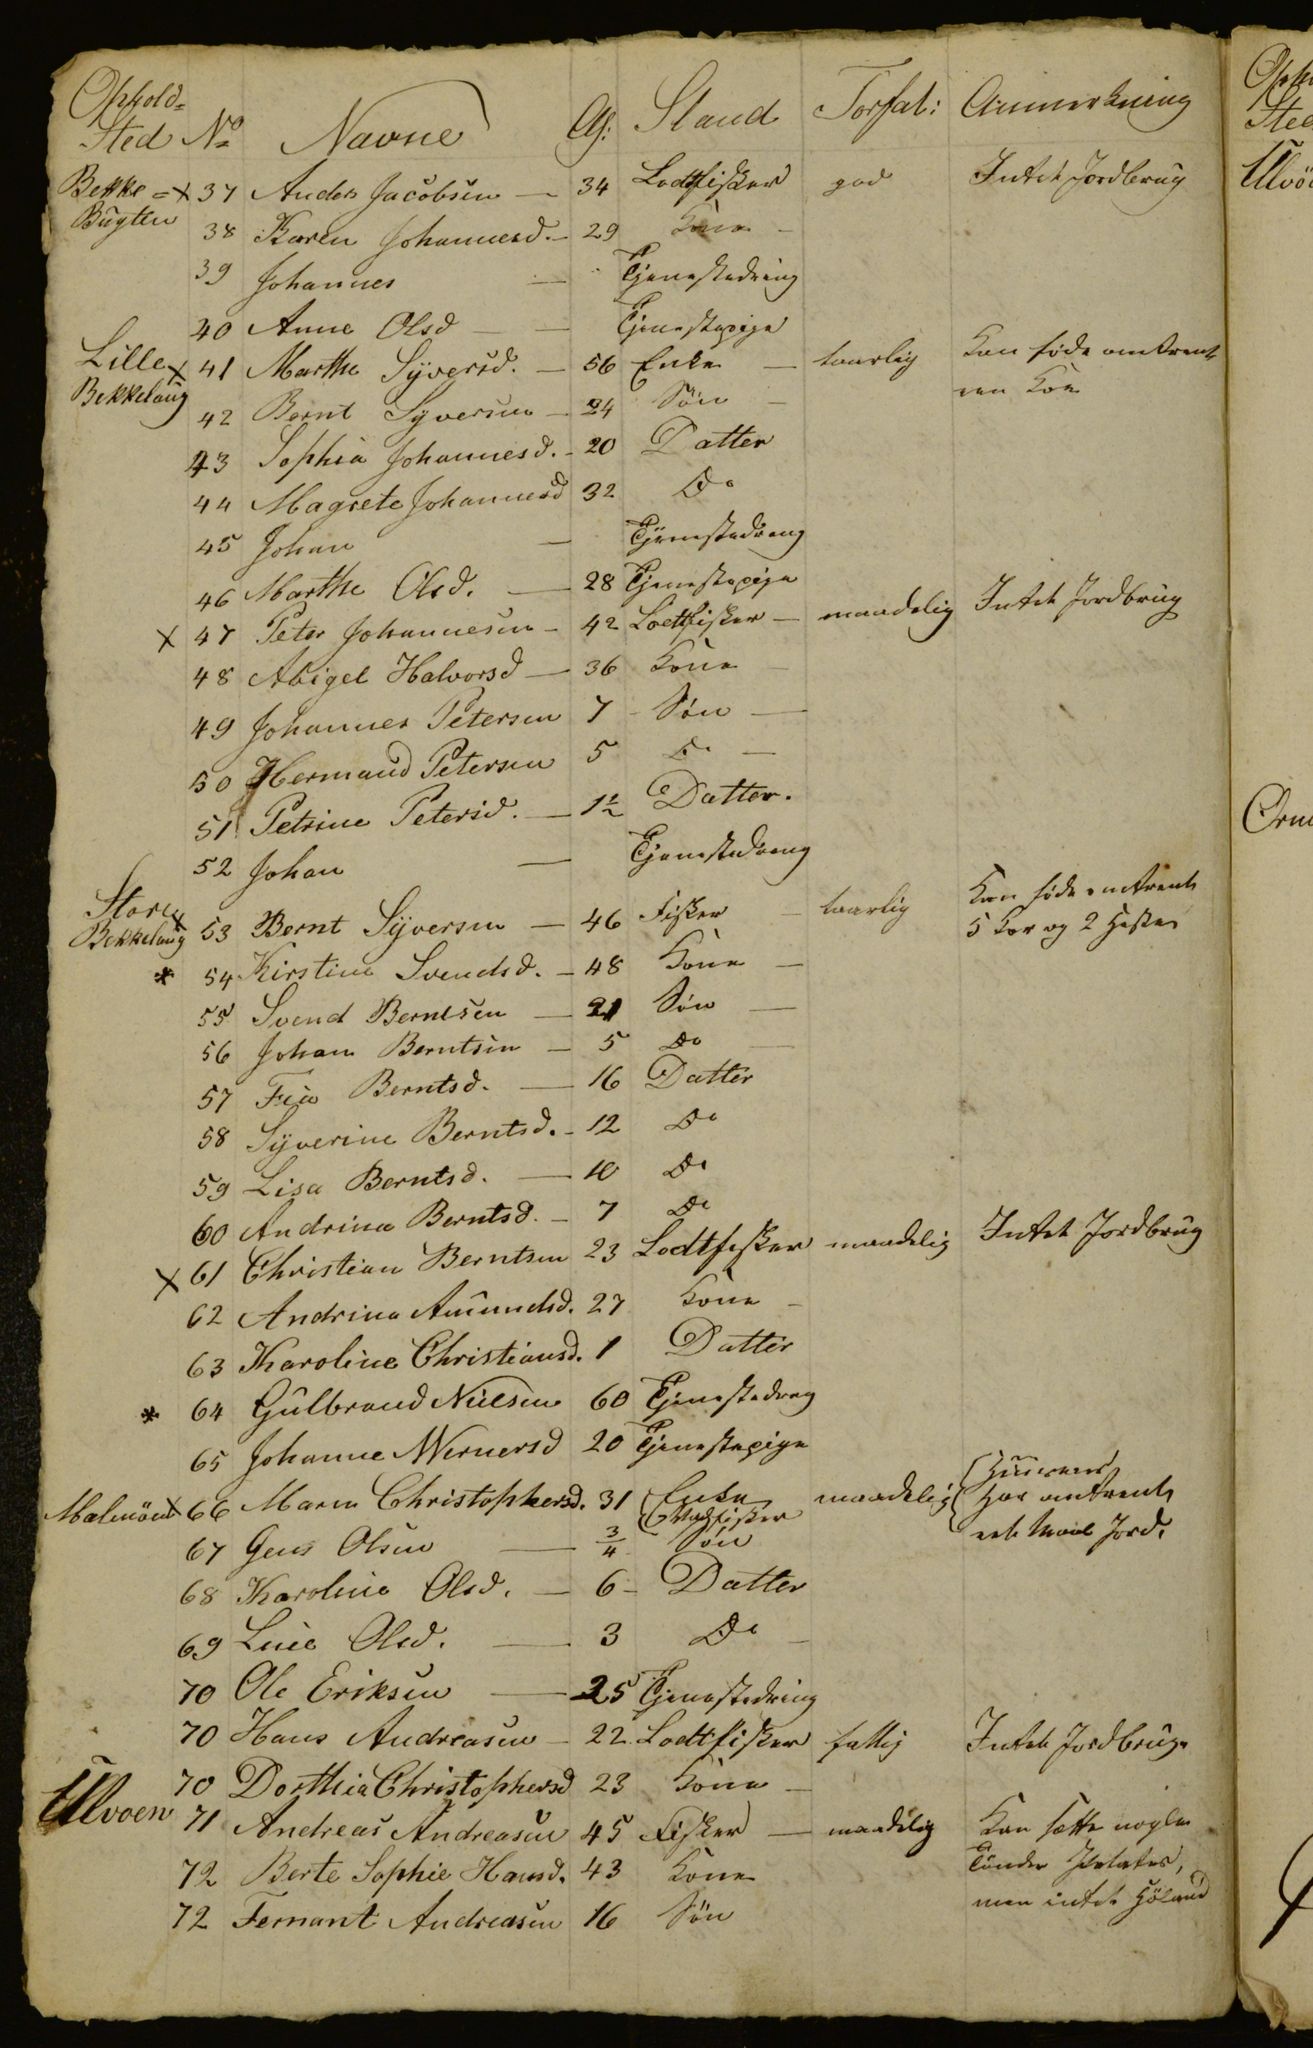 Ophold=
Sted No Navne Al: Stand Forfat: Anmerkning
Bekke= x 37 Anders Jacobsen — 34 Lodtfisker god Intet Jordbrug
Bugten 38 Karen Johannesd. — 29 Kone —
39 Johannes — Tjenestedreng
40 Anne Olsd — — Tjenestepige
Lille x 41 Marthe Syversd. — 56 Enke — taarlig Kan føde omtrent
Bekkelaug 42 Bernt Syversen — 24 Søn — een Koe
43 Sophia Johannesd. — 20 Datter
44 Magrete Johannesd 32 Do
45 Johan — Tjenestedreng
46 Marthe Olsd. — 28 Tjenestepige
x 47 Peter Johannesen — 42 Lodtfisker — maadelig Intet Jordbrug
48 Abigel Halvorsd — 36 Kone —
49 Johannes Petersen 7 — Søn —
50 Hermand Petersen 5 Do —
51 Petrine Petersd. — 1½ Datter.
52 Johan — Tjenestedreng
Store x 53 Bernt Syversen — 46 Fisker — taarlig Kan føde omtrent
Bekkelaug 5 Kor og 2 Heste
* 54 Kirstine Svendsd. — 48 Kone —
55 Svend Berntsen — 21 Søn —
56 Johan Berntsen — 5 Do —
57 Fia Berntsd. — 16 Datter
58 Syverine Berntsd. — 12 Do
59 Lisa Berntsd. — 10 Do
60 Andrina Berntsd. — 7 Do
x 61 Christian Berntsen 23 Lodtfisker maadelig Intet Jordbrug
62 Andrina Amundsd. 27 Kone —
63 Karoline Christiansd. 1 Datter
* 64 Gulbrand Nielsen 60 Tjenestedreng
65 Johanne Wernersd 20 Tjenestepige
Malmöen x 66 Maren Christophersd. 31 Enke maadelig
Fisker har omtrent
67 Jens Olsen — ¾ Søn Maal Jord.
68 Karoline Olsd. — 6 — Datter
69 Lise Olsd. — 3 Do —
70 Ole Eriksen — 25 Tjenestedreng
70 Hans Andreasen — 22 Lodtfisker fattig Intet Jordbrug.
70 Dorthia Christophersd 23 Kone —
Ulvoen 71 Andreas Andreasen 45 Fisker — maadelig Kan sætte nogle
72 Berte Sophie Hansd. 43 Kone Tønder Potates,
72 Fernant Andreasen 16 Søn men intet Høland
Oph
Sted
Ulvöe
Orm